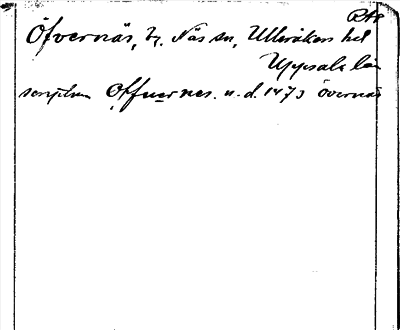 RA
Öfvernäs, by. Näs sn, Ulleråkers hd
Uppsala län
Offuernes. u. d. 1473 övernäs